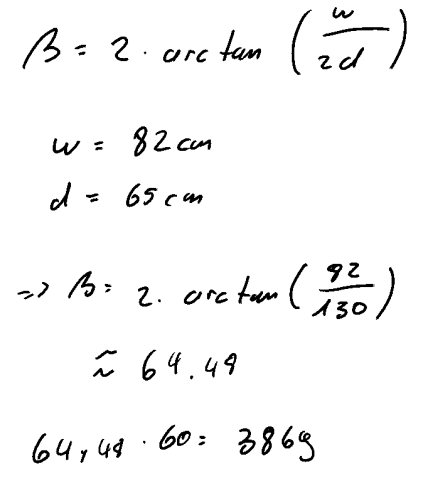 β = 2 · arctan (w/2d)
w = 82 cm
d = 65 cm
=> β = 2 · arctan (82/130)
≈ 64.48
64,48 · 60 = 3869